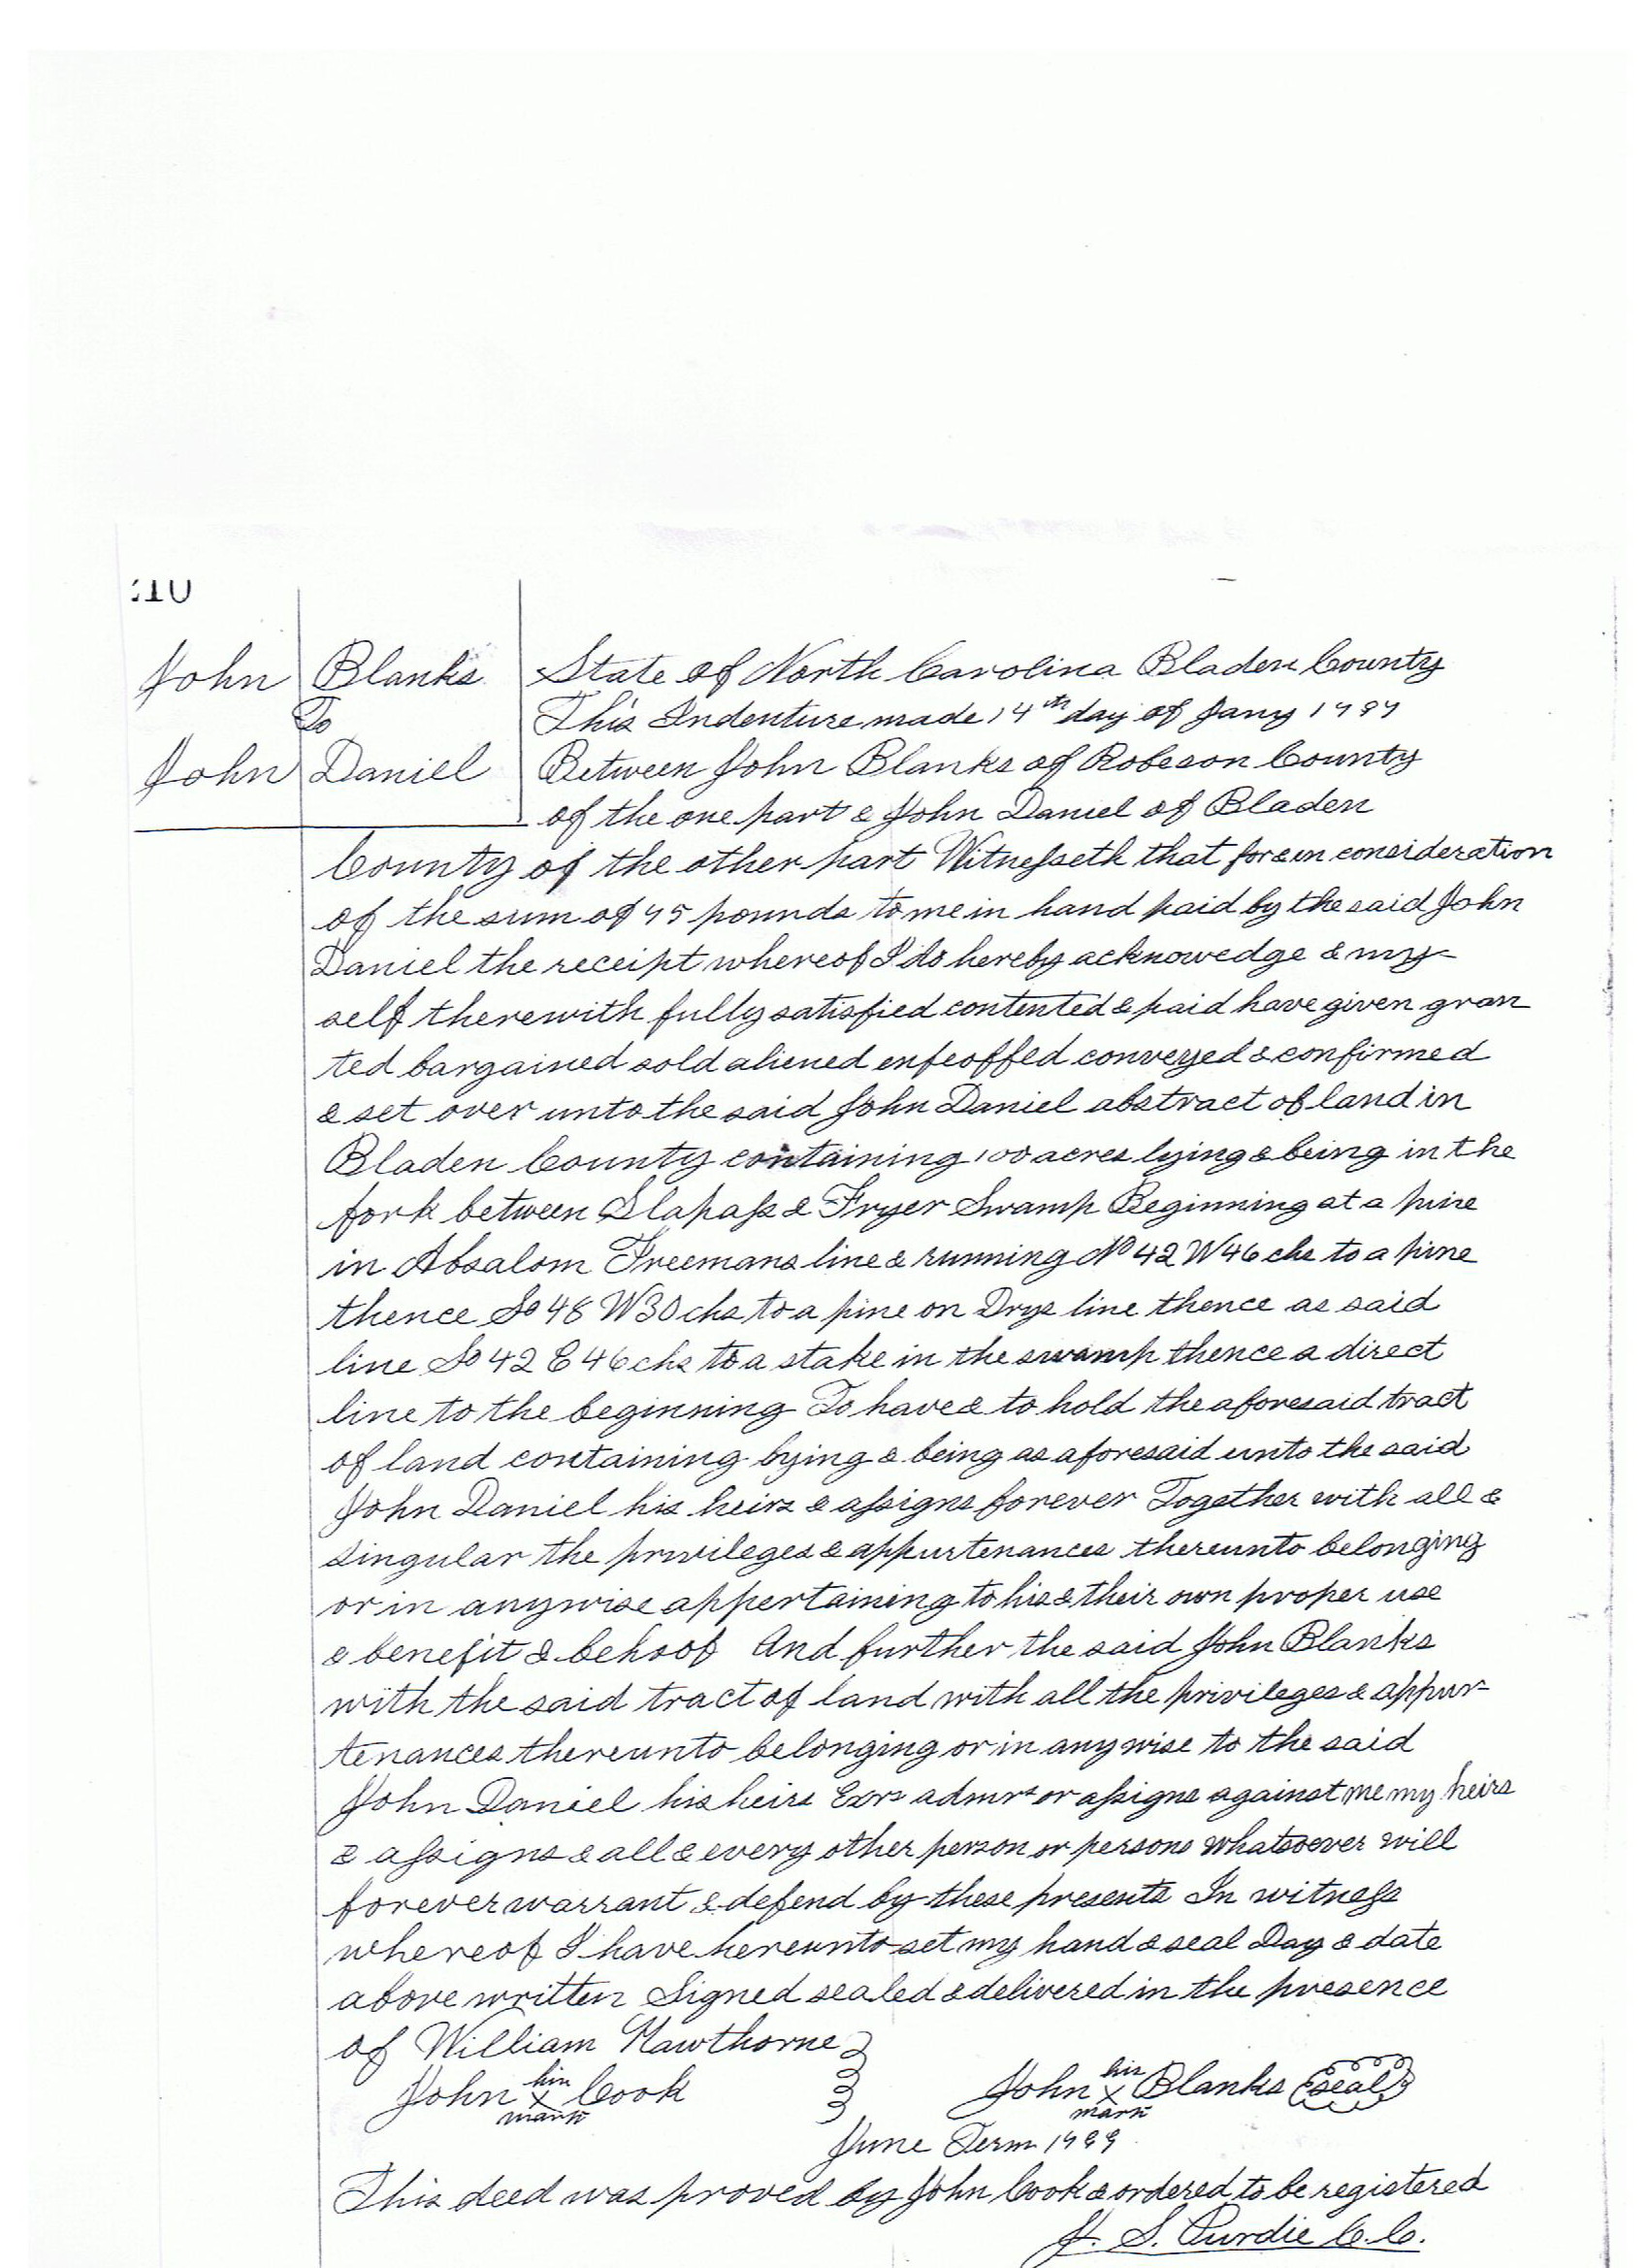 :10
John Blanks
To
John Daniel
State of North Carolina Bladen County
This Indenture made 14th day of Jany 1797
Between John Blanks of Robeson County
of the one part & John Daniel of Bladen
County of the other part Witnesseth that for & in consideration
of the sum of 45 pounds to me in hand paid by the said John
Daniel the receipt whereof I do hereby acknowedge & my-
self therewith fully satisfied contented & paid have given gran
ted bargained sold aliened enfeoffed conveyed & confirmed
& set over unto the said John Daniel abstract of land in
Bladen County containing 100 acres lying & being in the
fork between Slapass & Fryer Swamp Beginning at a pine
in Absalom Freemans line & running No 42 W 46 chs to a pine
thence So 48 W 30 chs to a pine on Drys line thence as said
line So 42 E 46 chs to a stake in the swamp thence a direct
line to the beginning To have & to hold the aforesaid tract
of land containing lying & being as aforesaid unto the said
John Daniel his heirs & assigns forever Together with all &
singular the privileges & appurtenances thereunto belonging
or in anywise appertaining to his & their own proper use
& benefit & behoof And further the said John Blanks
with the said tract of land with all the privileges & appur-
tenances thereunto belonging or in anywise to the said
John Daniel his heirs Exrs admrs or assigns against me my heirs
& assigns & all & every other person or persons whatsoever will
forever warrant & defend by these presents In witness
whereof I have hereunto set my hand & seal Day & date
above written Signed sealed & delivered in the presence
of William Hawthorne
his
John X Cook
mark
his
John X Blanks Seal
mark
June Term 1799
This deed was proved by John Cook & ordered to be registered
J. S. Purdie C.C.